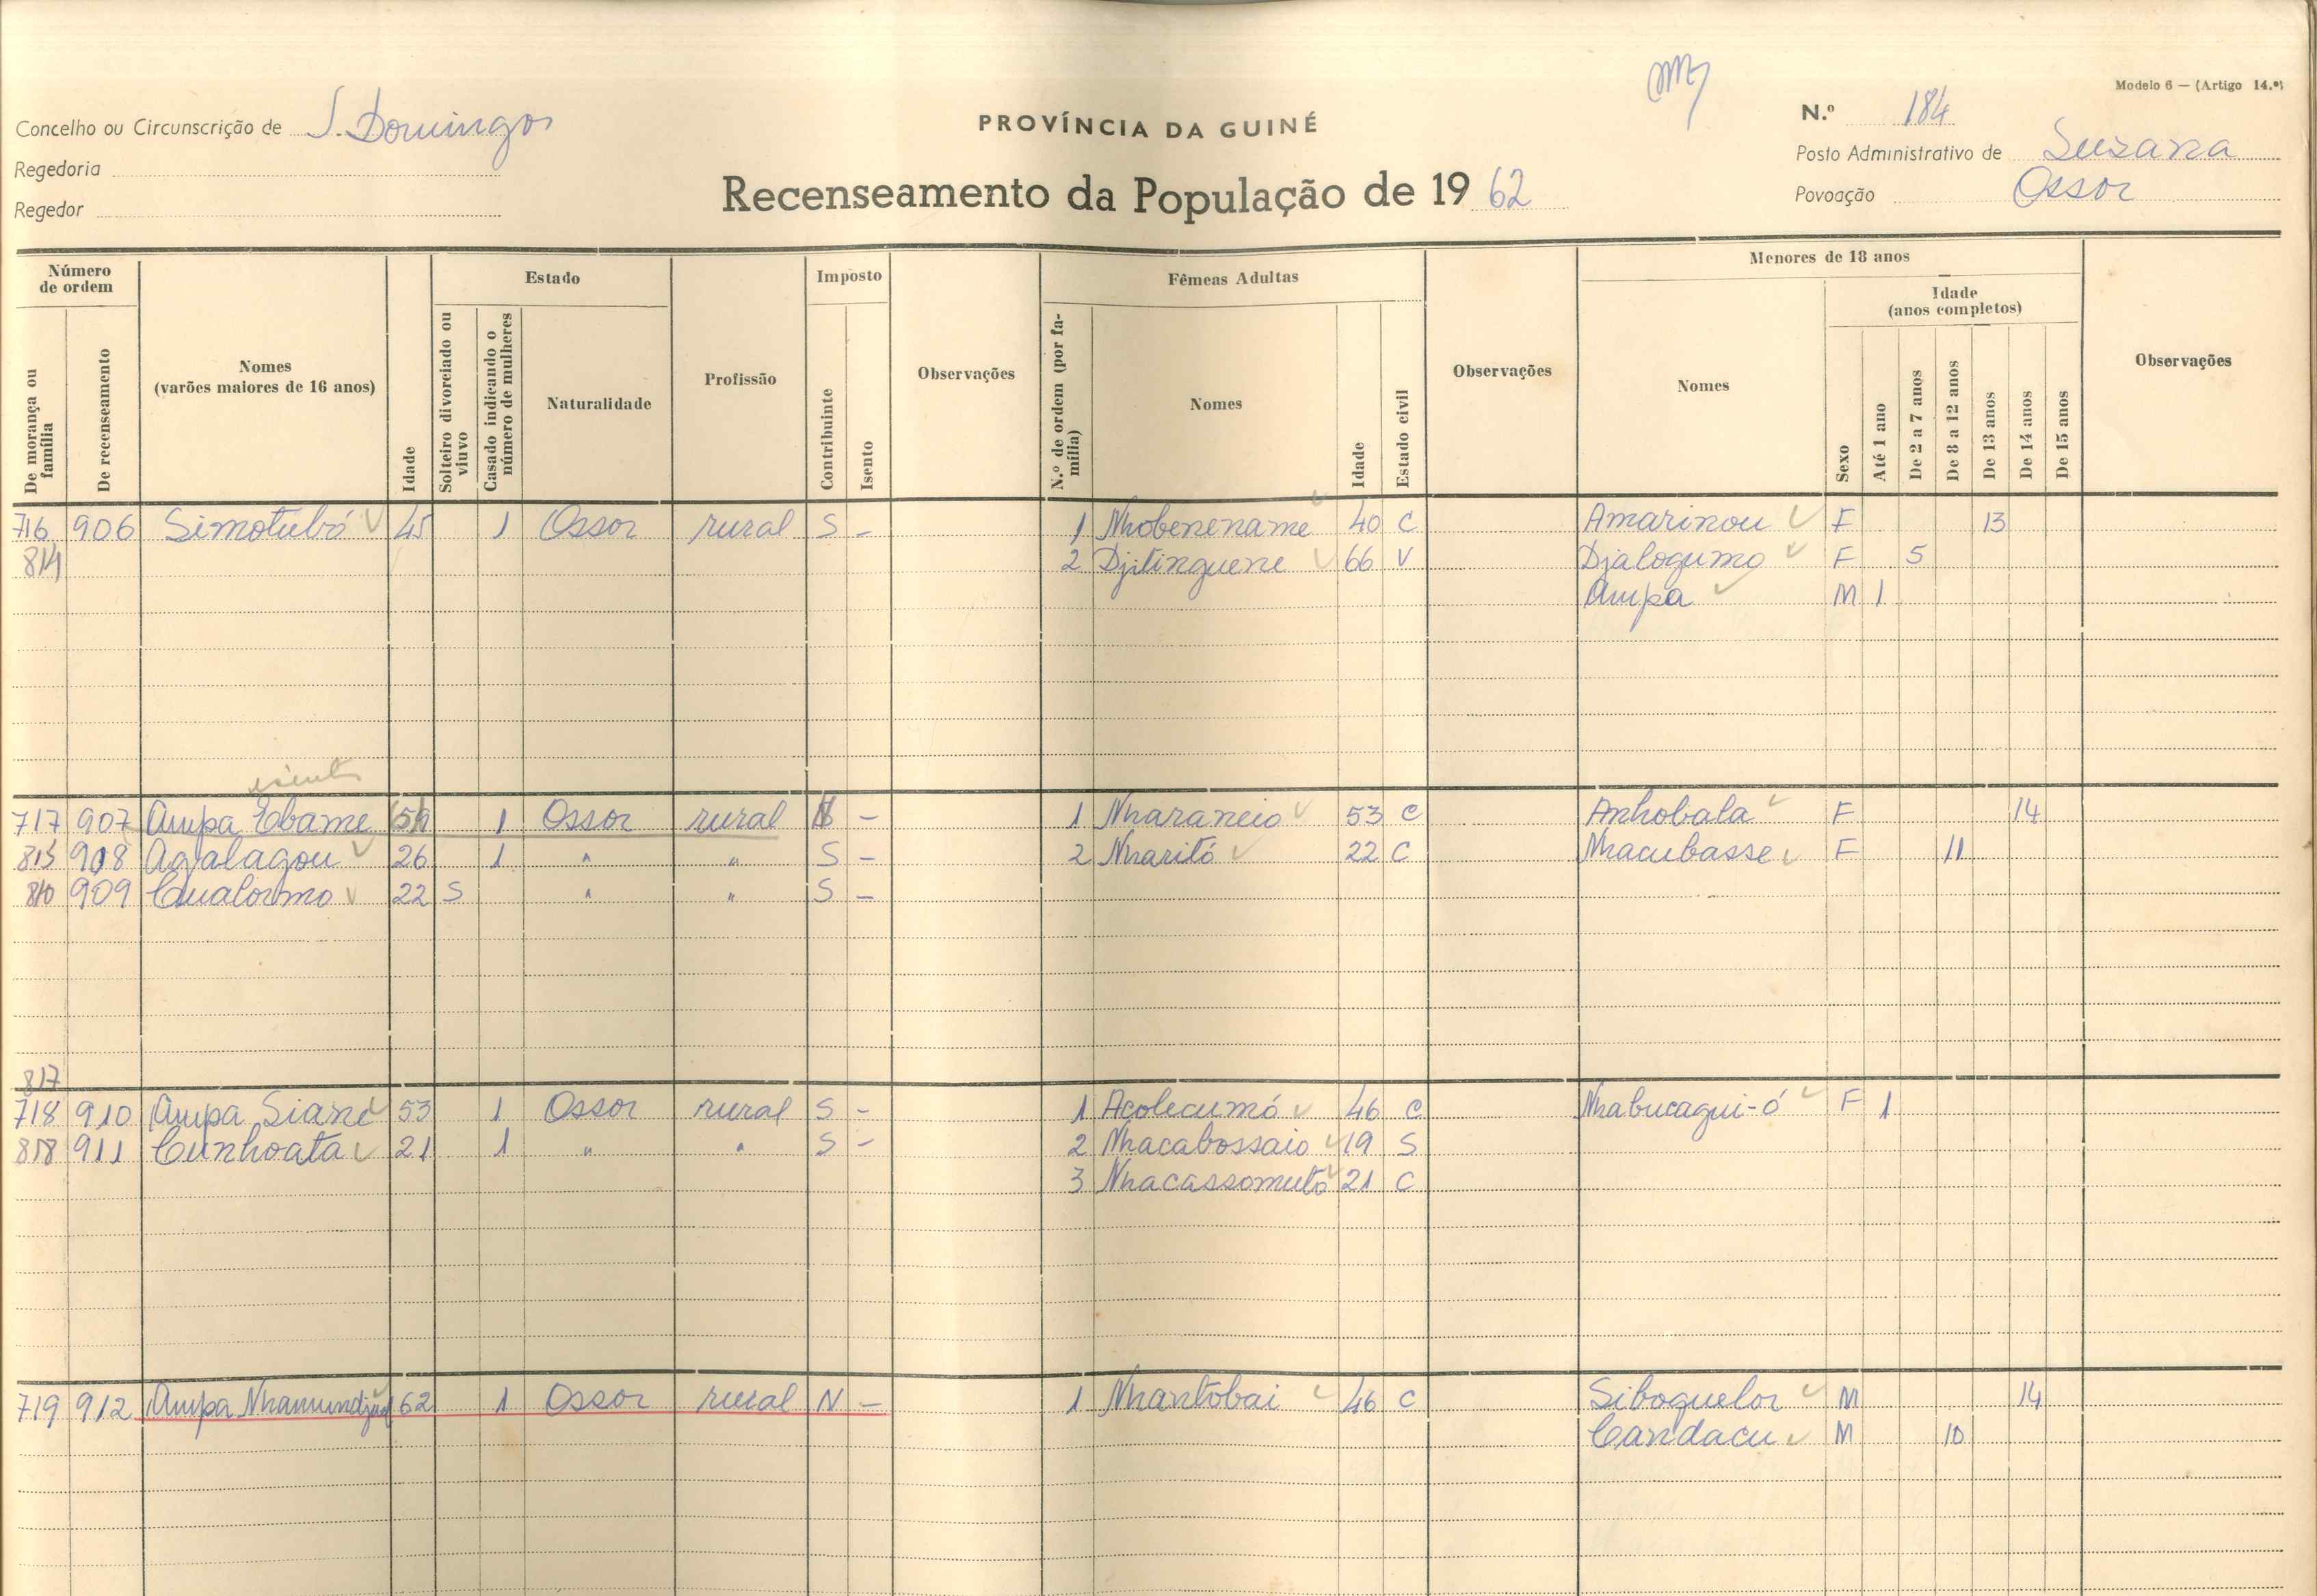 Modelo 6 — (Artigo 14.º)
Concelho ou Circunscrição de S. Domingos
PROVÍNCIA DA GUINÉ
N.º 184
Regedoria
Posto Administrativo de Suzana
Regedor
Recenseamento da População de 1962
Povoação Ossor
Número de ordem
De morança ou família
De recenseamento
Nomes (varões maiores de 16 anos)
Idade
Estado
Solteiro divorciado ou viuvo
Casado indicando o número de mulheres
Naturalidade
Profissão
Imposto
Contribuinte
Isento
Observações
Fêmeas Adultas
N.º de ordem (por família)
Nomes
Idade
Estado civil
Observações
Menores de 18 anos
Nomes
Idade (anos completos)
Sexo
Até 1 ano
De 2 a 7 anos
De 8 a 12 anos
De 13 anos
De 14 anos
De 15 anos
Observações
716 906 Simotubó 45 1 Ossor rural S - 1 Nhobenename 40 C Amarinou F 13
814 2 Djitinguene 66 V Djalogumo F 5
Ampa M 1
717 907 Ampa Ebame 1 Ossor rural - 1 Nharaneio 53 C Anhobala F 14
815 908 Agalagou 26 1 " " S - 2 Nharitó 22 C Nhacubasse F 11
909 Cualormo 22 S " " S -
817
718 910 Ampa Siané 53 1 Ossor rural S - 1 Acolecumó 46 C Nhabucagui-ó F 1
818 911 Cunhoata 21 1 " " S - 2 Nhacabossaio 19 S
3 Nhacassomutó 21 C
719 912 Ampa 62 1 Ossor rural N - 1 Nhantobai 46 C Siboquelor M 14
Candacu M 10